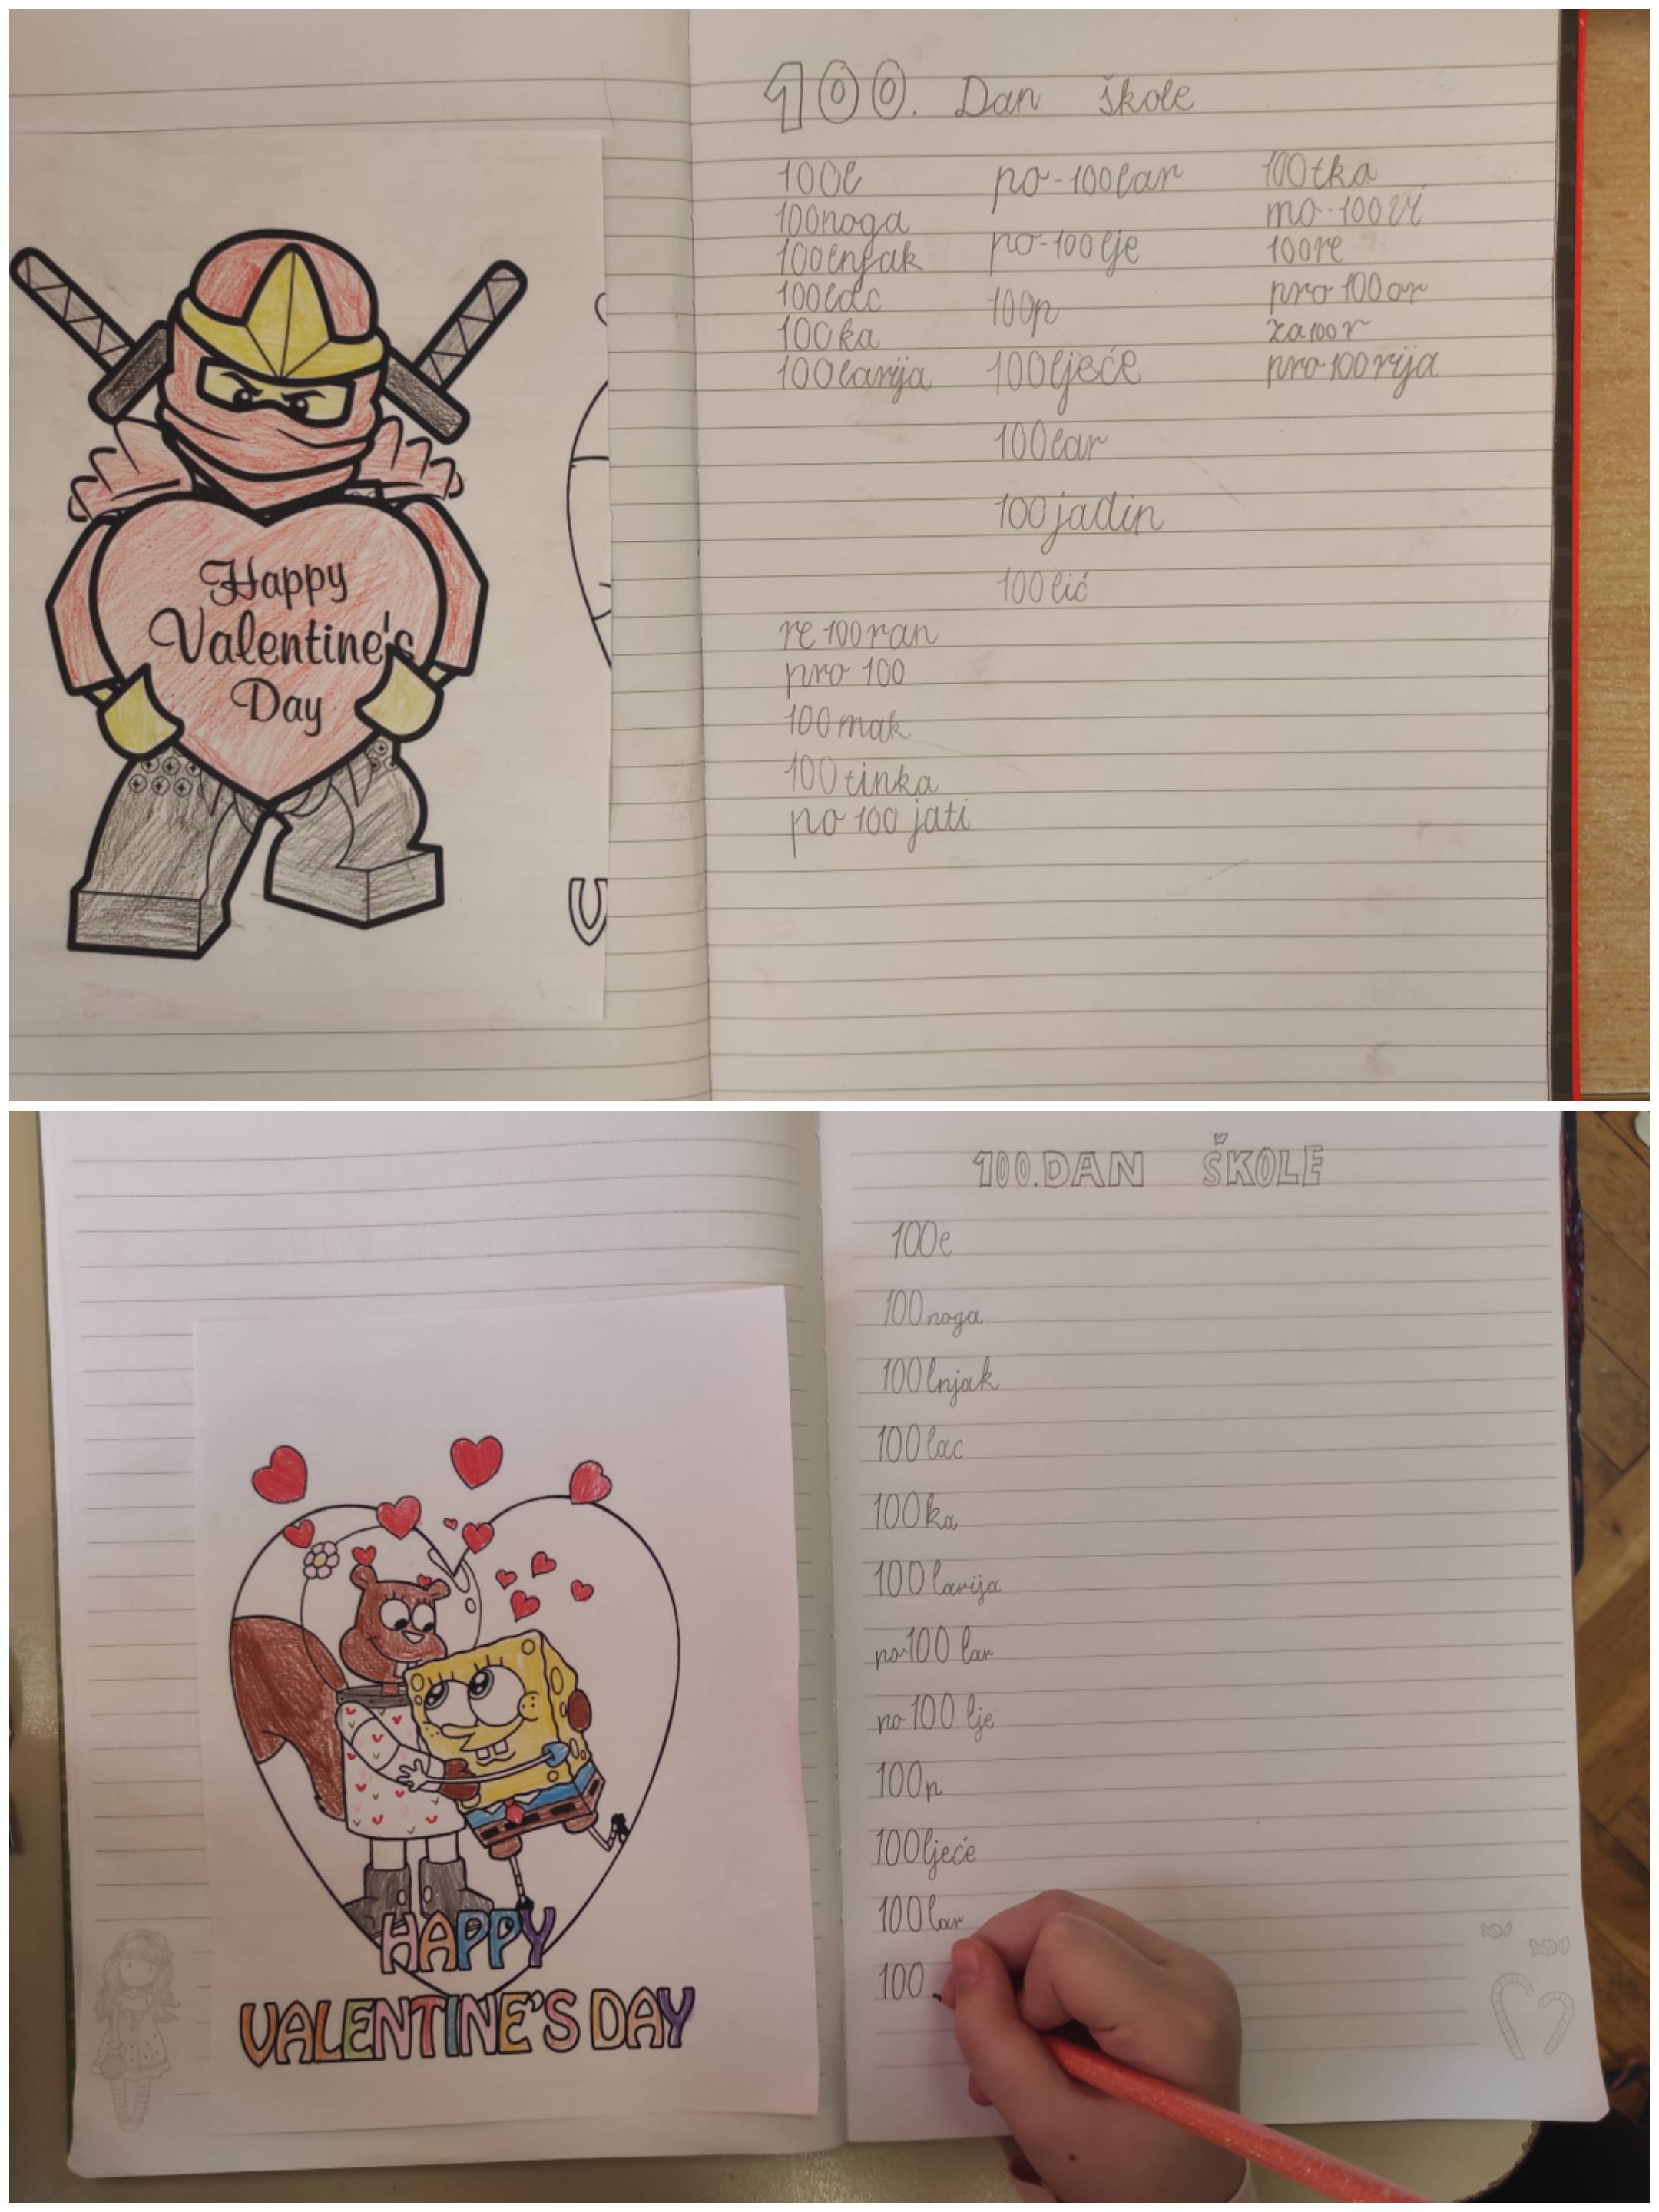 Happy
Valentine's
Day
100. Dan škole
100l
100noga
100lnjak
100lac
100ka
100larija
po-100lar
po-100lje
100p
100ljeće
100lar
100jadin
100lić
100tka
mo-100vi
100re
pro100or
za100r
pro100rija
re100ran
pro 100
100mak
100tinka
po 100 jati
HAPPY
VALENTINE'S DAY
100. DAN ŠKOLE
100l
100noga
100lnjak
100lac
100ka
100larija
po-100 lar
po-100 lje
100p
100ljeće
100lar
100